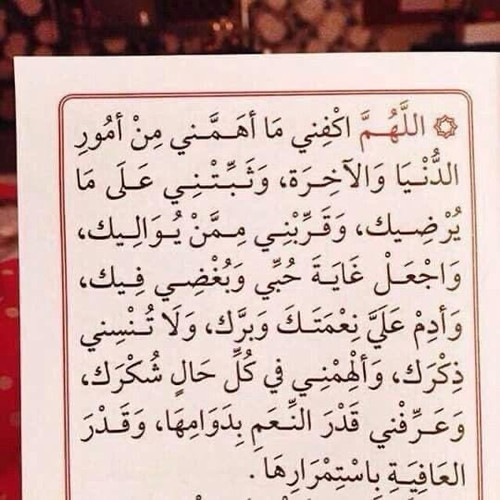 ۞ اللَّهُمَّ اكْفِني مَا أهَمَّني مِنْ أمُورِ
الدُّنْيَا وَالآخِرَة، وَثَبِّتْنِي عَلَى مَا
يُرْضِيك، وَقَرِّبْنِي مِمَّنْ يُوَالِيك،
وَاجْعَلْ غَايَةَ حُبِّي وَبُغْضِي فِيك،
وَأدِمْ عَلَيَّ نِعْمَتَكَ وَبِرَّك، وَلَا تُنْسِني
ذِكْرَك، وَألْهِمْنِي في كُلِّ حَالٍ شُكْرَك،
وَعَرِّفْني قَدْرَ النِّعَمِ بِدَوَامِهَا، وَقَدْرَ
العَافِيَةِ بِاسْتِمْرَارِهَا .